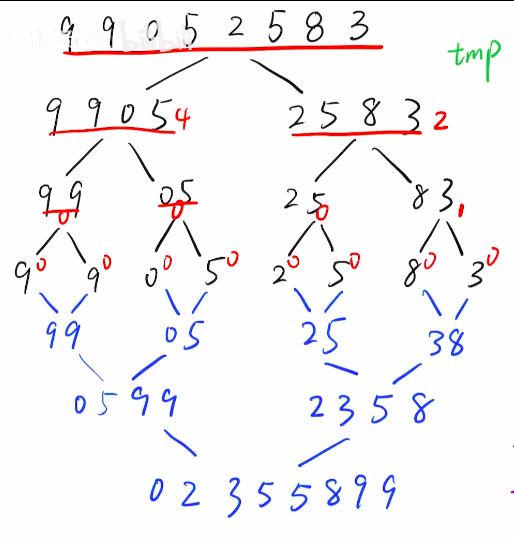 9 9 0 5 2 5 8 3
tmp
9 9 0 5 4 2 5 8 3 2
9 9 0 0 5 0 2 5 0 8 3 1
9 0 9 0 0 0 5 0 2 0 5 0 8 0 3 0
9 9 0 5 2 5 3 8
0 5 9 9 2 3 5 8
0 2 3 5 5 8 9 9